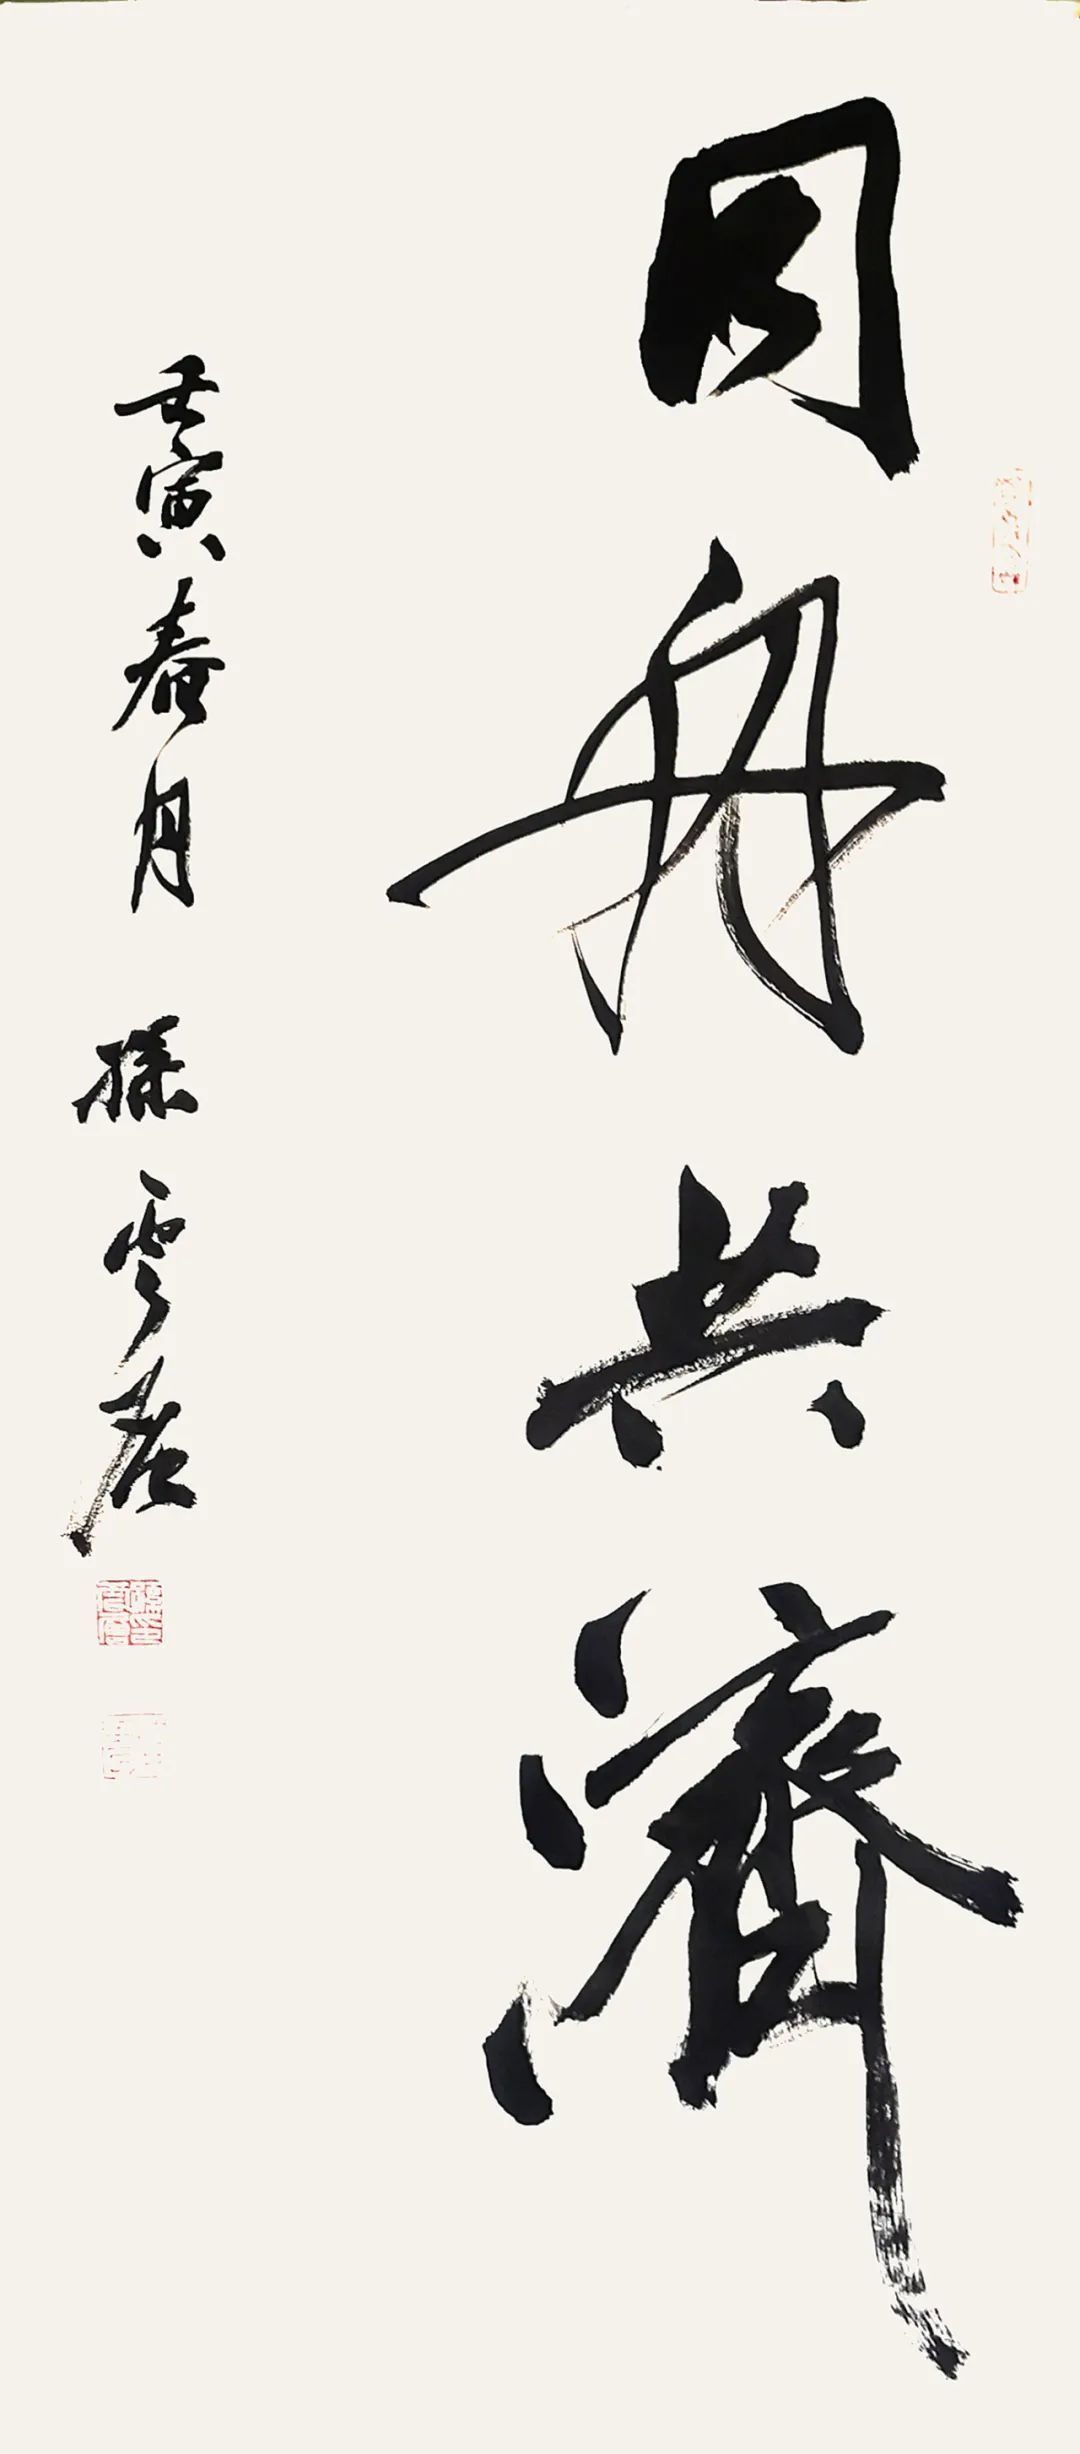 同舟共濟
壬寅春月 孫雲君